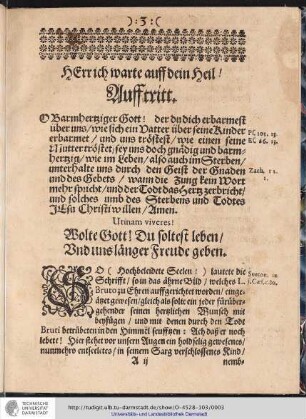 ):3:(
HErr ich warte auff dein Heil/
Aufftritt.
O Barmhertziger Gott! der du dich erbarmest
über uns/ wie sich ein Vatter über seine Kinder
erbarmet / und uns tröstest/ wie einen seine
Mutter tröstet/ sey uns doch gnädig und barm-
hertzig/ wie im Leben/ also auch im Sterben/
unterhalte uns durch den Geist der Gnaden
und des Gebets / wann die Zung kein Wort
mehr spricht/ und der Todt das Hertz zerbricht/
und solches umb des Sterbens und Todtes
JEsu Christi willen/ Amen.
Ps. 103. 13.
Es. 66. 13.
Zach. 12.
Utinam viveres!
Wolte Gott! Du soltest leben/
Und uns länger Freude geben.
SO (Hochbeleidte Seelen!) lautete die
Schrifft/ so in das ährne Bild / welches L.
Bruto zu Ehren auffgerichtet worden/ einge-
gehender seinen hertzlichen Wunsch mit
beyfügen/ und mit denen durch den Todt
Bruti betrübeten in den Himmel seufftzen: Ach daß er noch
lebete! Hier stehet vor unsern Augen ein holdselig gewesenes/
nunmehro entseeltes/ in seinem Sarg verschlossenes Kind/
A ij
nemb-
TECHNISCHE
UNIVERSITÄT
DARMSTADT
http://tudigit.ulb.tu-darmstadt.de/show/O-4528-103/0003
Universitäts- und Landesbibliothek Darmstadt